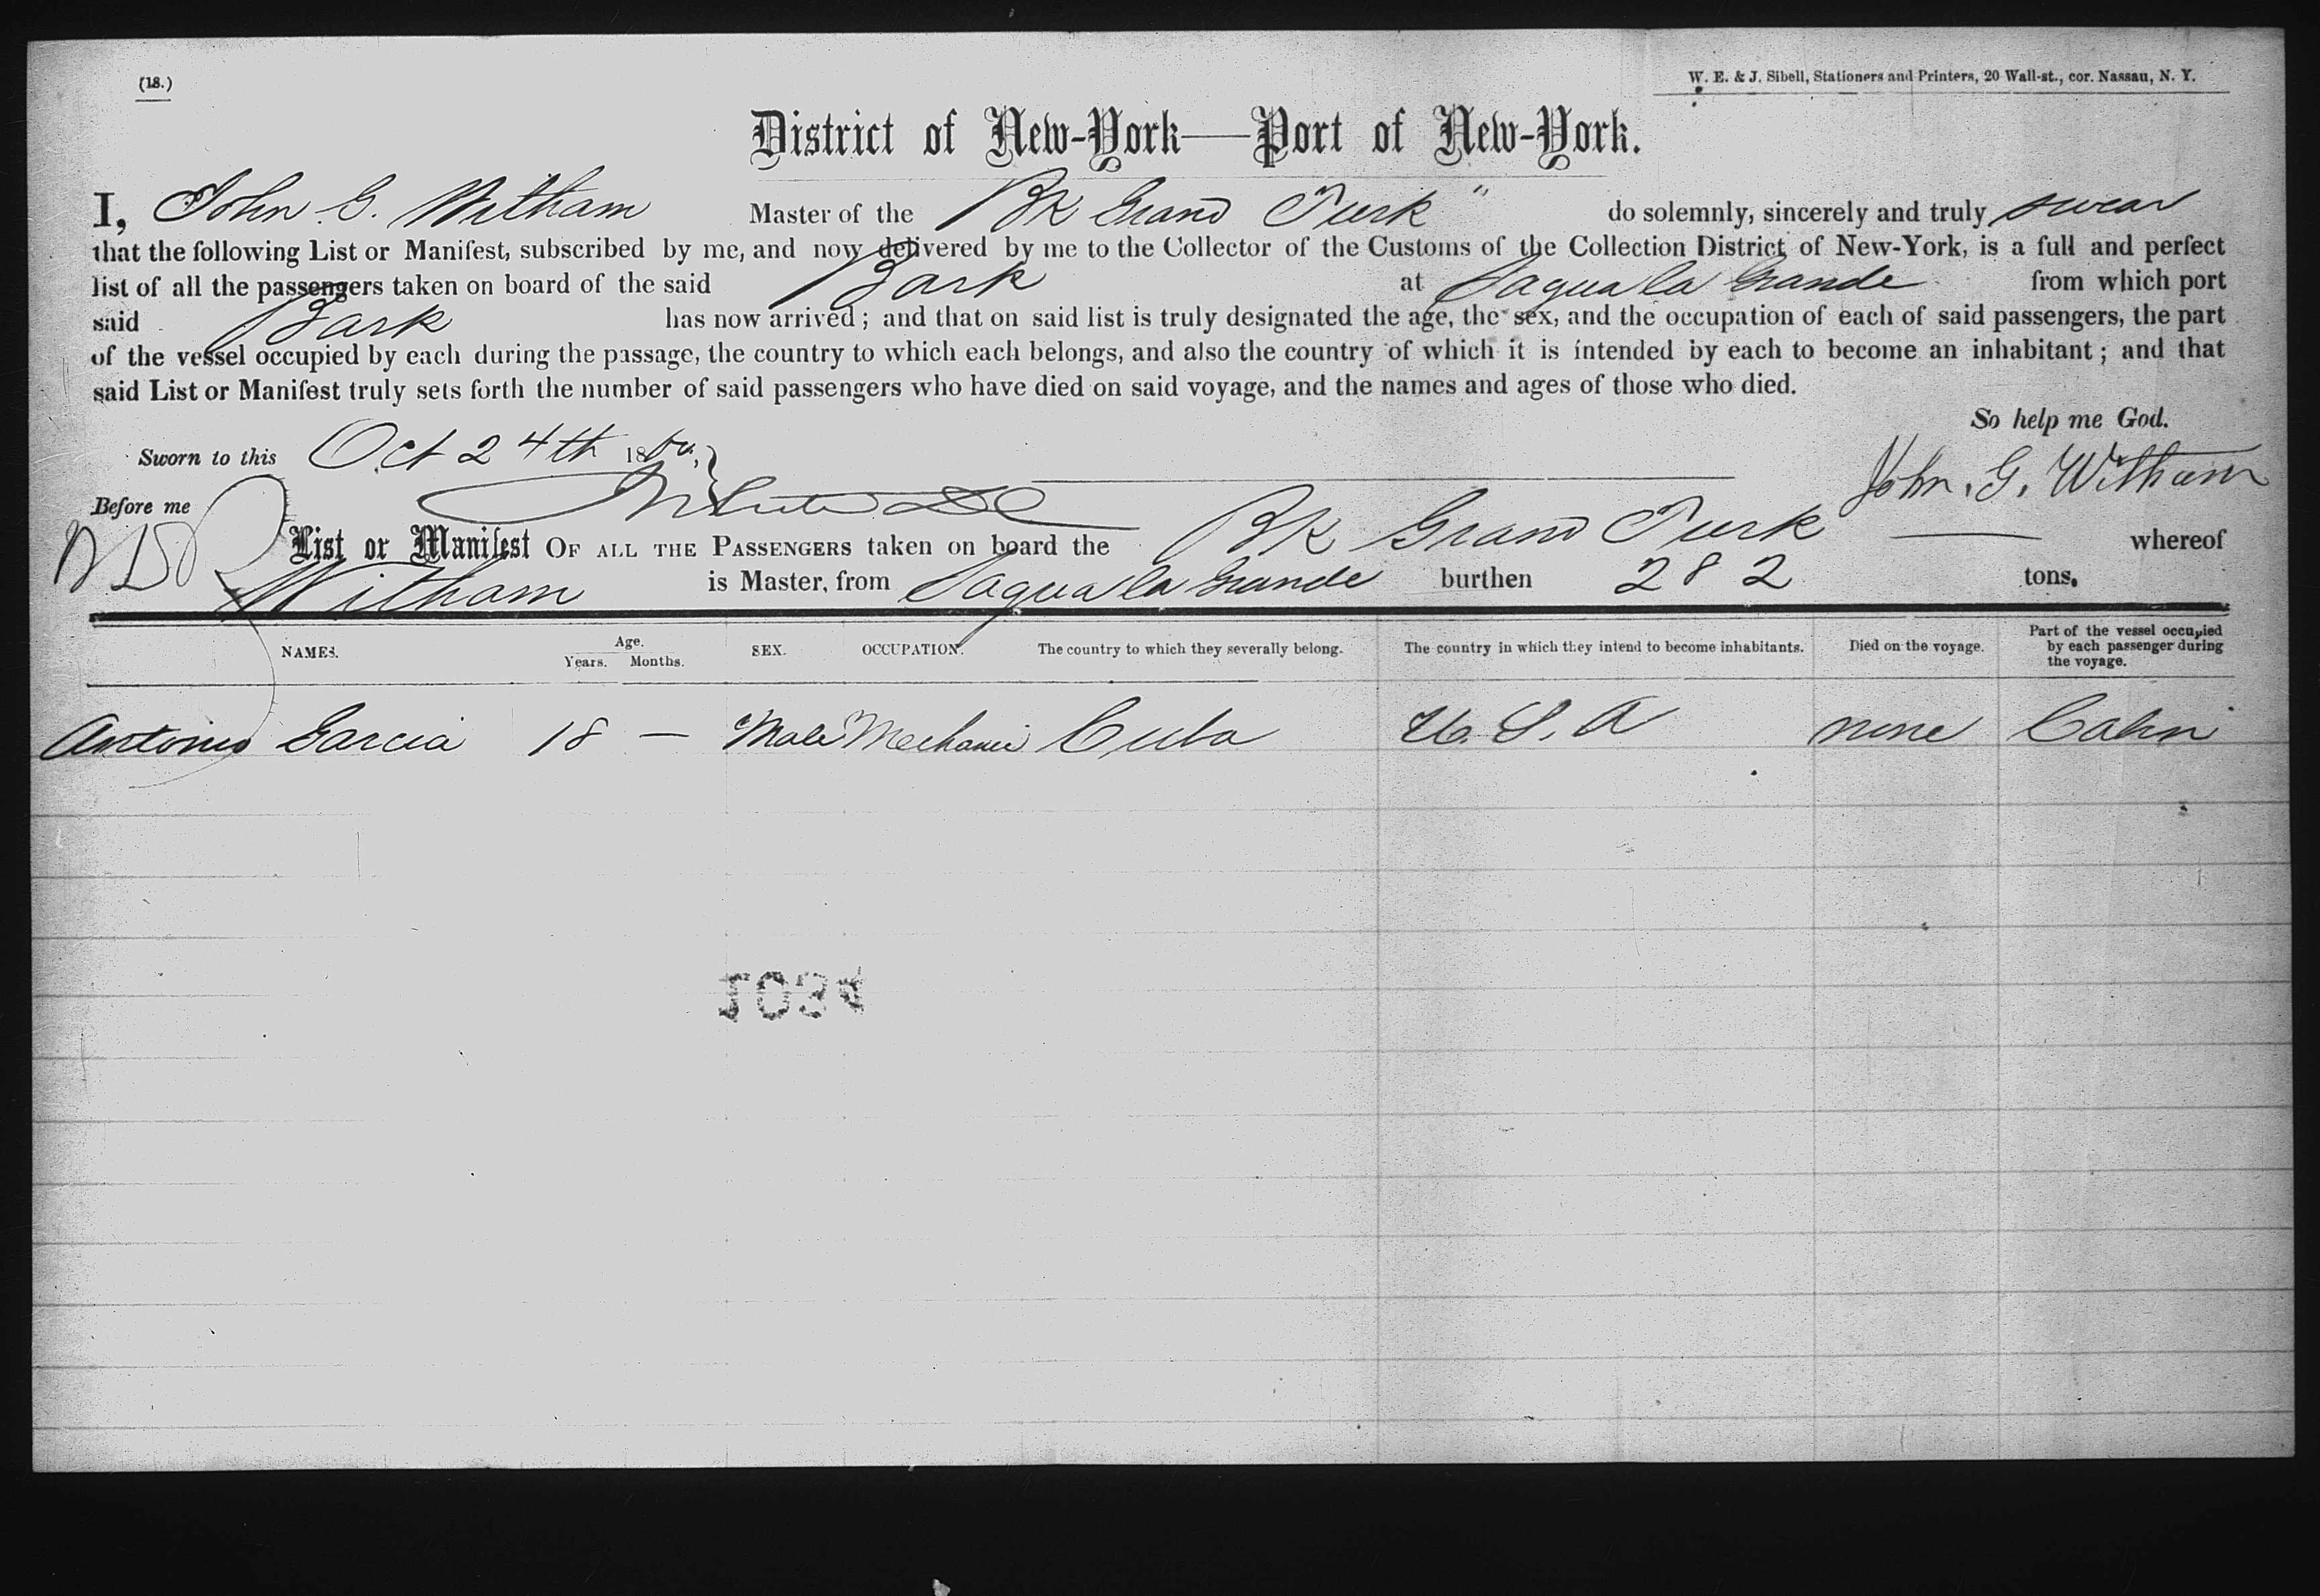 (18.)
W. E. & J. Sibell, Stationers and Printers, 20 Wall-st., cor. Nassau, N. Y.
District of New-York—Port of New-York.
I, John G. Witham Master of the "Bk Grand Turk" do solemnly, sincerely and truly swear
that the following List or Manifest, subscribed by me, and now delivered by me to the Collector of the Customs of the Collection District of New-York, is a full and perfect
list of all the passengers taken on board of the said Bark at Sagua la Grande from which port
said Bark has now arrived; and that on said list is truly designated the age, the sex, and the occupation of each of said passengers, the part
of the vessel occupied by each during the passage, the country to which each belongs, and also the country of which it is intended by each to become an inhabitant; and that
said List or Manifest truly sets forth the number of said passengers who have died on said voyage, and the names and ages of those who died.
So help me God.
Sworn to this Oct 24th 18
John. G. Witham
Before me
List or Manifest OF ALL THE PASSENGERS taken on board the Bk Grand Turk whereof
Witham is Master, from Sagua la Grande burthen 282 tons.
NAMES. Age. Years. Months. SEX. OCCUPATION. The country to which they severally belong. The country in which they intend to become inhabitants. Died on the voyage. Part of the vessel occupied by each passenger during the voyage.
Antonio Garcia 18 — Male Mechanic Cuba U. S. A none Cabin